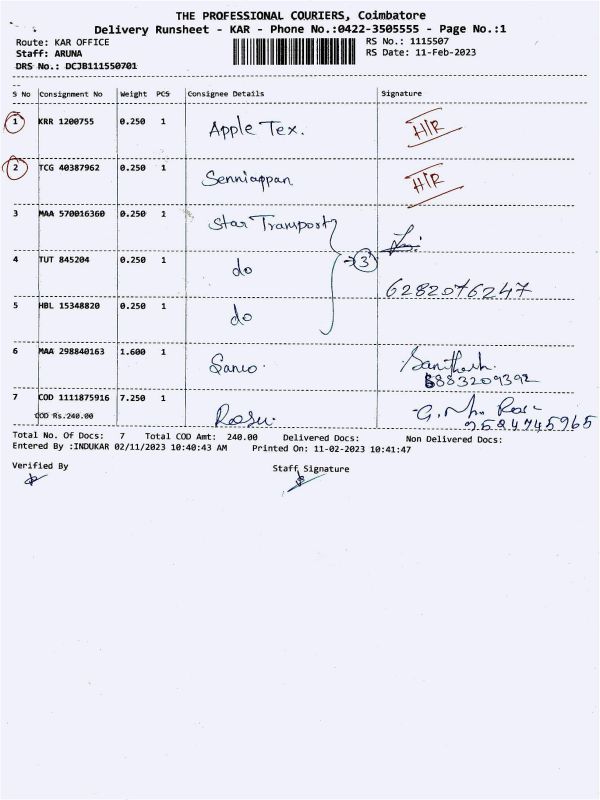 THE PROFESSIONAL COURIERS, Coimbatore
Delivery Runsheet - KAR - Phone No.:0422-3505555 - Page No.:1
Route: KAR OFFICE RS No.: 1115507
Staff: ARUNA RS Date: 11-Feb-2023
DRS No.: DCJB111550701
S No Consignment No Weight PCS Consignee Details Signature
1 KRR 1200755 0.250 1 Apple Tex. H/R
2 TCG 40387962 0.250 1 Senniappan H/R
3 MAA 570016360 0.250 1 Star Transport
4 TUT 845204 0.250 1 do → 3
6282076247
5 HBL 15348820 0.250 1 do
6 MAA 298840163 1.600 1 Sanco.
8883209392
7 COD 1111875916 7.250 1
COD Rs.240.00
9524745965
Total No. Of Docs: 7 Total COD Amt: 240.00 Delivered Docs: Non Delivered Docs:
Entered By :INDUKAR 02/11/2023 10:40:43 AM Printed On: 11-02-2023 10:41:47
Verified By Staff Signature